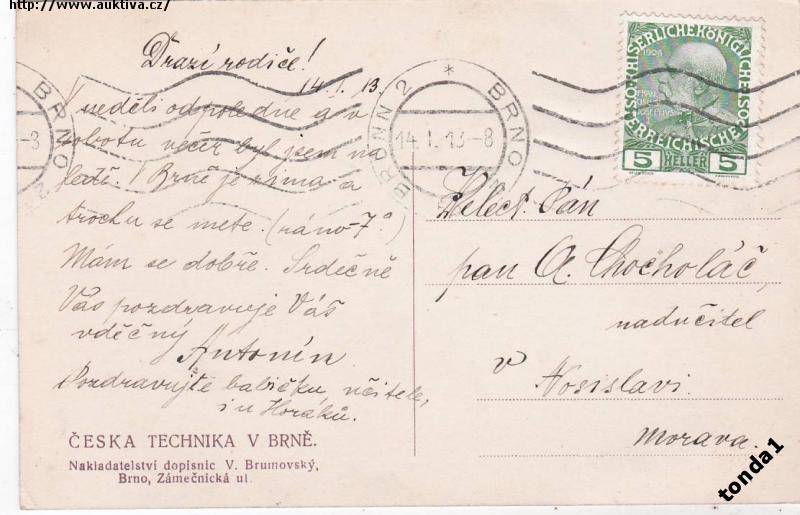 http://www.auktiva.cz/
Drazí rodiče!
14.I.13.
V neděli odpoledne a v
sobotu večer byl jsem na
ledě. V Brně je zima a
trochu se mete. (ráno -7°)
Mám se dobře. Srdečně
Vás pozdravuje Váš
vděčný
Antonín.
Pozdravujte babičku, učitele,
i u Horáků.
ČESKA TECHNIKA V BRNĚ.
Nakladatelství dopisnic V. Brumovský,
Brno, Zámečnická ul.
BRNO
BRÜNN 2 * BRNO
14.I.13-8
KAISERLICHE KÖNIGLICHE
1908
ÖSTERREICHISCHE
5 HELLER 5
Velect. Pán
pan A. Chocholáč,
nadučitel
v
Nosislavi.
Morava.
tonda1